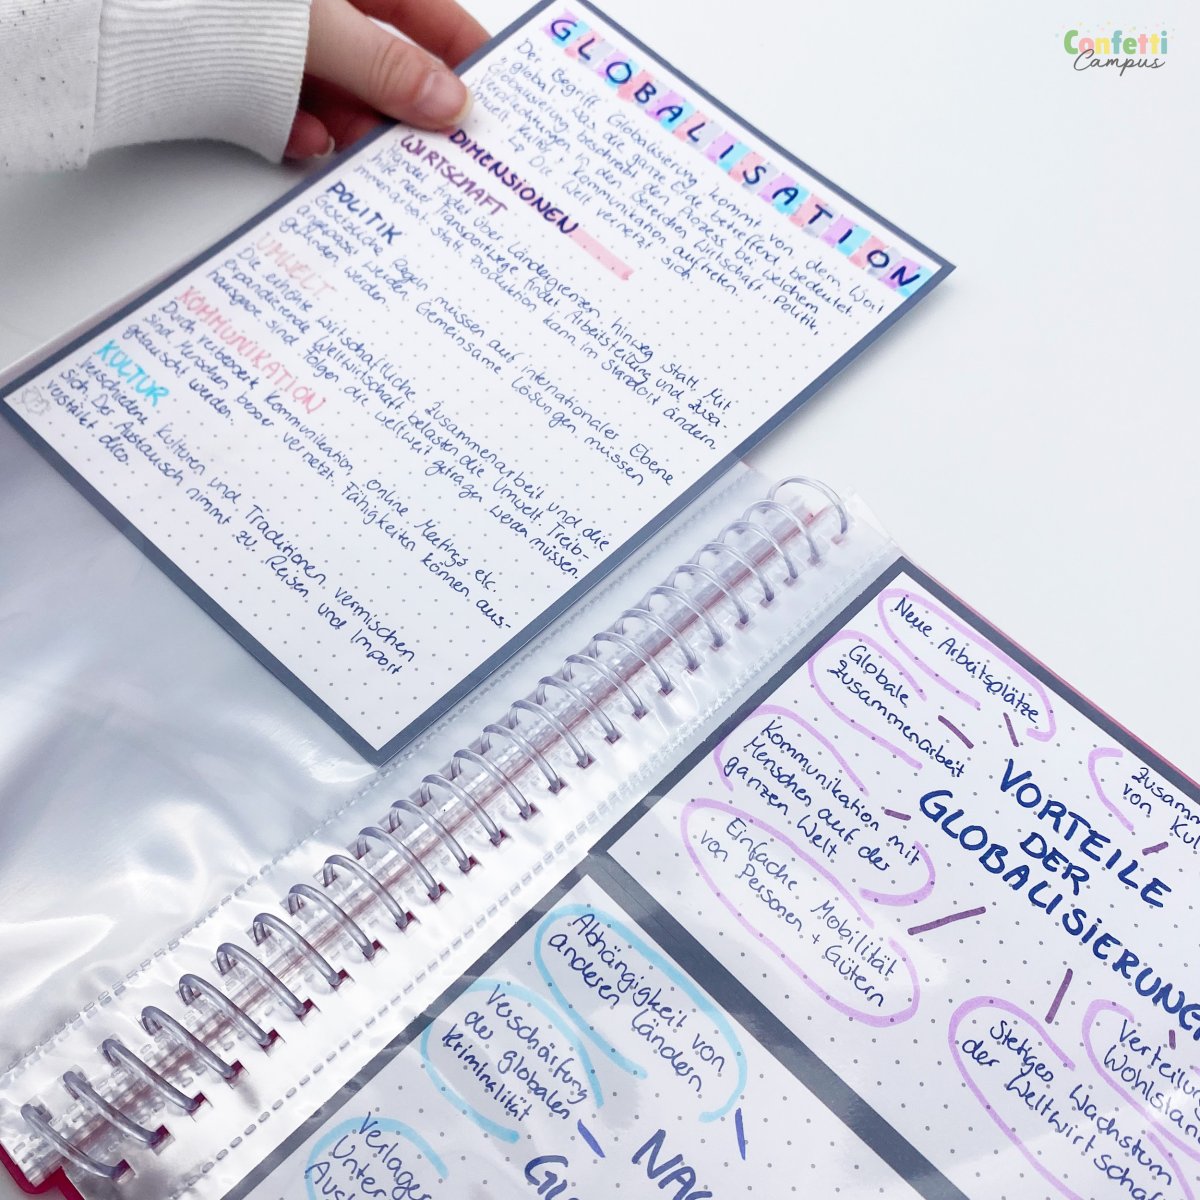 Confetti
Campus
GLOBALISATION
Der Begriff Globalisierung kommt von dem Wort
"global", was die ganze Erde betreffend bedeutet.
Globalisierung beschreibt den Prozess bei welchem
Verpflechtungen in den Bereichen Wirtschaft, Politik
Kultur + Kommunikation auftreten.
↳ Die Welt vernetzt sich
DIMENSIONEN
WIRTSCHAFT
Handel findet über Ländergrenzen hinweg statt. Mit
hilfe neuer Transportwege findet Arbeitsteilung und Zusa-
mmenarbeit statt. Produktion kann im Standort ändern
POLITIK
Gesetzliche Regeln müssen auf internationales Ebene
angepasst werden. Gemeinsame Lösungen müssen
gefunden werden.
UMWELT
Die erhöhte wirtschaftliche Zusammenarbeit und die
expandierende Weltwirtschaft belasten die Umwelt. Treib-
hausgase sind Folgen, die weltweit getragen werden müssen.
KOMMUNIKATION
Durch verbesserte Kommunikation, Online Meetings etc.
sind Menschen besser vernetzt. Fähigkeiten können aus-
getauscht werden.
KULTUR
Verschiedene Kulturen und Traditionen vermischen
sich. Der Austausch nimmt zu. Reisen und Import
verstärkt dies.
Neue Arbeitsplätze
Globale
Zusammenarbeit
Kommunikation mit
Menschen auf der
ganzen Welt
Einfache Mobilität
von Personen + Gütern
VORTEILE
DER
GLOBALISIERUNG
Zusamm
von Kul
Stetiges Wachstum
der Weltwirtscha
Verteilun
Wohlstan
Abhängigkeit von
anderen Ländern
Verschärfung
der globalen
Kriminalität
Verlager
Unter
Ausl
NAC
GL